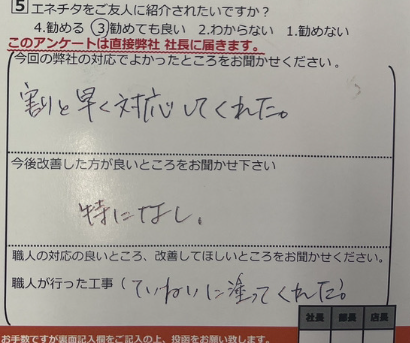 5 エネチタをご友人に紹介されたいですか？
4.勧める ③勧めても良い 2.わからない 1.勧めない
このアンケートは直接弊社 社長に届きます。
今回の弊社の対応でよかったところをお聞かせください。
割と早く対応してくれた。
今後改善した方が良いところをお聞かせ下さい
特になし。
職人の対応の良いところ、改善してほしいところをお聞かせください。
職人が行った工事（ていねいに塗ってくれた。
社長 部長 店長
お手数ですが裏面記入欄をご記入の上、投函をお願い致します。